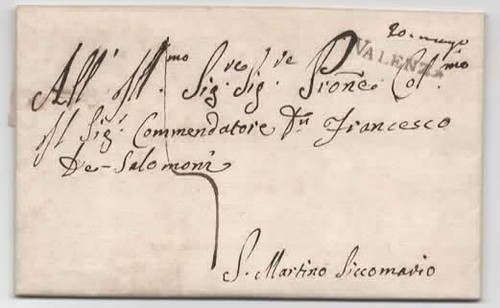 20. maggio
VALENZA
All' Ill.mo Sig.re Sig.re Prōne Col.mo
Il Sig.r Commendatore Dn Francesco
De-Salomoni
S. Martino Siccomario